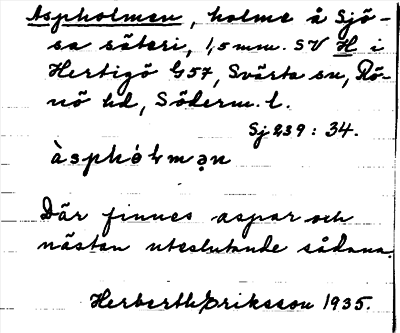 Aspholmen, holme å Sjö-
sa säteri, 1,5 mm. SV H i
Hertigö G57, Svärta sn, Rö-
nö hd, Söderm. l.
Sj 239 : 34.
àsphólmạn
Där finnes aspar och
nästan uteslutande sådana.
Herberth Eriksson 1935.